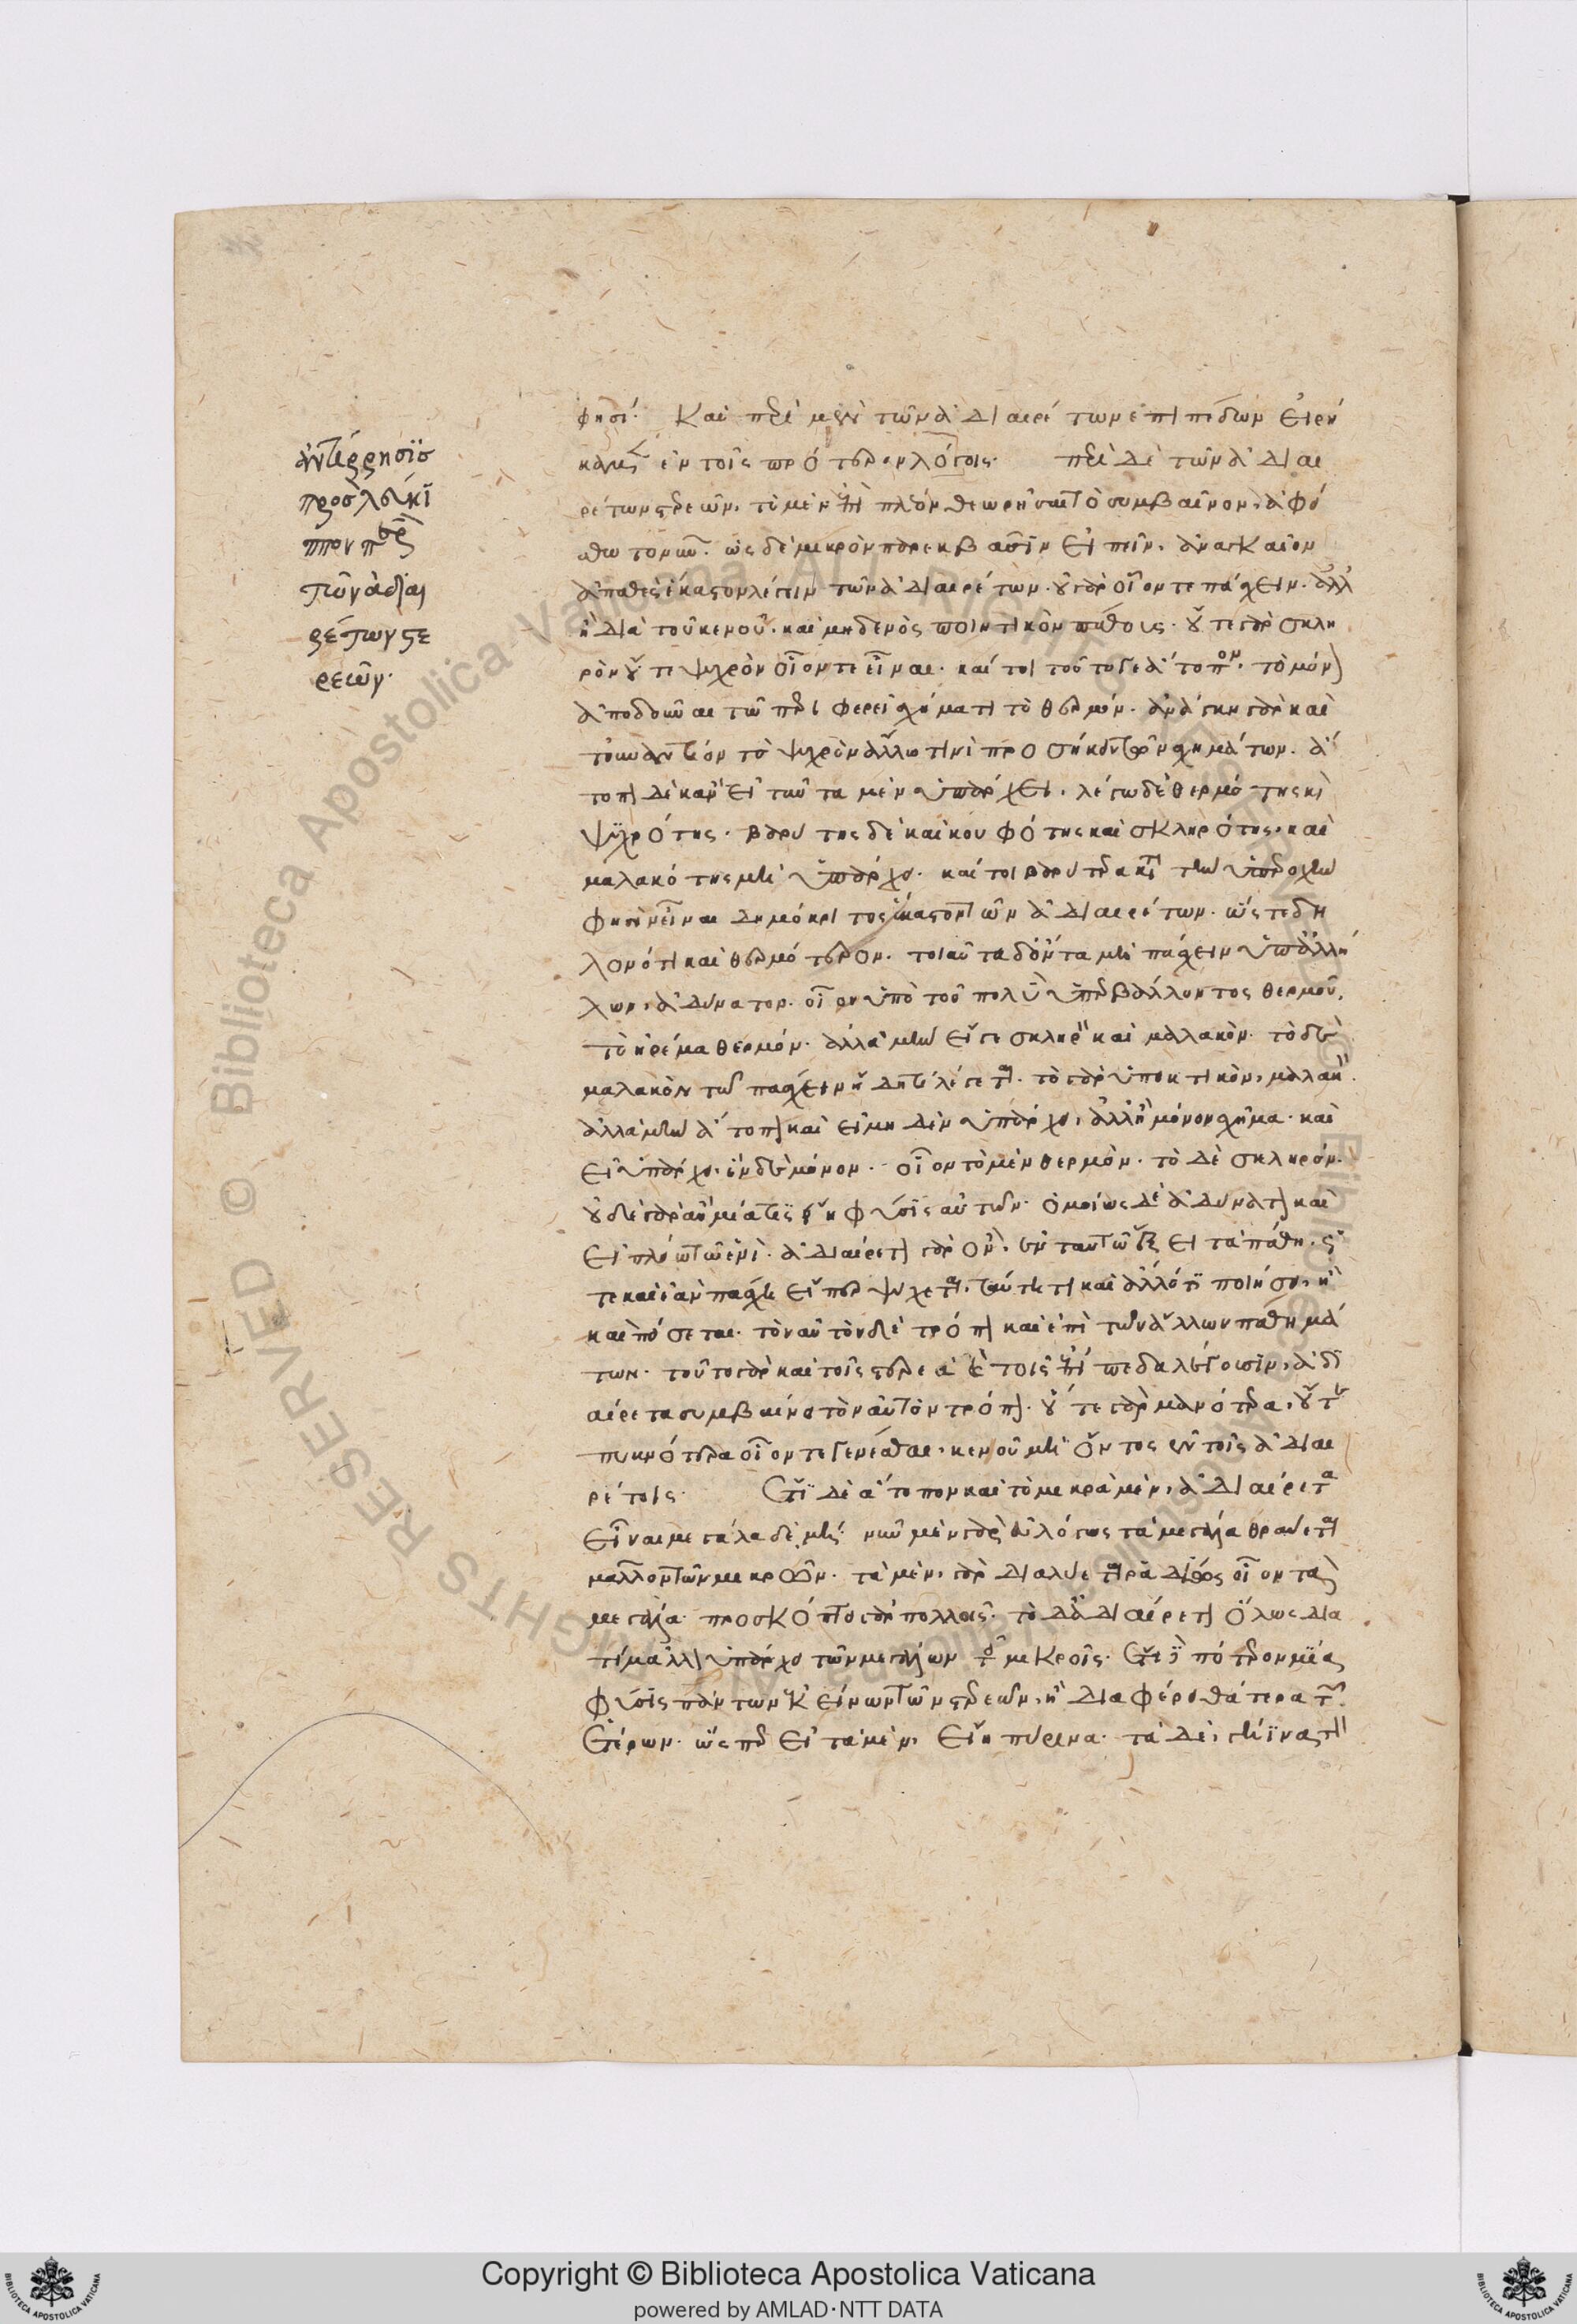 φησί· Καὶ περὶ μὲν τῶν ἀδιαιρέτων ἐπιπέδων εἰρή
καμεν ἐν τοῖς πρότερον λόγοις· περὶ δὲ τῶν ἀδιαι
ρέτων στερεῶν, τὸ μὲν ἐπὶ πλέον θεωρῆσαι τὸ συμβαῖνον, ἀφεί
σθω τονῦν· ὡς δὲ μικρὸν παρεκβᾶσιν εἰπεῖν, ἀναγκαῖον
ἀπαθὲς ἕκαστον λέγειν τῶν ἀδιαιρέτων· οὐ γὰρ οἷόν τε πάσχειν· ἀλλ
ἢ διὰ τοῦ κενοῦ· καὶ μηδενὸς ποιητικὸν πάθους· οὔτε γὰρ σκλη
ρὸν οὔτε ψυχρὸν οἷόν τε εἶναι· καίτοι τοῦτό γε ἄτοπον· τὸ μόνον
ἀποδοῦναι τῷ περιφερεῖ σχήματι τὸ θερμόν· ἀνάγκη γὰρ καὶ
τοὐναντίον τὸ ψυχρὸν ἄλλω τινὶ προσήκειν τῶν σχημάτων· ἄ
τοπον δὲ κἂν εἰ ταῦτα μὲν ὑπάρχει· λέγω δὲ θερμότης καὶ
ψυχρότης· βαρύτης δὲ καὶ κουφότης καὶ σκληρότης, καὶ
μαλακότης μὴ ὑπάρχει· καίτοι βαρύτερα κατὰ τὴν ὑπεροχὴν
φησιν εἶναι Δημόκριτος ἕκαστον τῶν ἀδιαιρέτων· ὥστε δῆ
λον ὅτι καὶ θερμότερον· τοιαῦτα δ' ὄντα μὴ πάσχειν ὑπ' ἀλλή
λων, ἀδύνατον· οἷον ὑπὸ τοῦ πολὺ ὑπερβάλλοντος θερμοῦ,
τὸ ἠρέμα θερμόν· ἀλλὰ μὴν εἴ γε σκληρὸν καὶ μαλακόν· τὸ δὲ
μαλακὸν τῷ πάσχειν ἤδη τι λέγεται· τὸ γὰρ ὑπεικτικὸν, μαλακὸν·
ἀλλὰ μὴν ἄτοπον καὶ εἰ μηδὲν ὑπάρχει, ἀλλ' ἢ μόνον σχῆμα· καὶ
εἰ ὑπάρχει, ἓν δὲ μόνον· οἷον τὸ μὲν θερμὸν· τὸ δὲ σκληρόν·
οὐδὲ γὰρ ἂν μία τις εἴη φύσις αὐτῶν· ὁμοίως δὲ ἀδύνατον καὶ
εἰ πλείω τῷ ἑνί· ἀδιαίρετον γὰρ ὂν, ἐν ταυτῷ ἕξει τὰ πάθη, ὥσ
τε καὶ ἐὰν πάσχῃ εἴπερ ψύχεται, ταύτῃ τι καὶ ἄλλό τι ποιήσει, ἢ
καὶ πείσεται· τὸν αὐτὸν δὲ τρόπον καὶ ἐπὶ τῶν ἄλλων παθημά
των· τοῦτο γὰρ καὶ τοῖς στερεὰ καὶ τοῖς ἐπίπεδα λέγουσιν, ἀδι
αίρετα συμβαίνει τὸν αὐτὸν τρόπον· οὔτε γὰρ μανότερα, οὔτε
πυκνότερα οἷόν τε γενέσθαι, κενοῦ μὴ ὄντος ἐν τοῖς ἀδιαι
ρέτοις· Ἔτι δὲ ἄτοπον καὶ τὸ μικρὰ μὲν, ἀδιαίρετα
εἶναι μεγάλα δὲ μή· νῦν μὲν γὰρ εὐλόγως τὰ μεγάλα θραύεται
μᾶλλον τῶν μικρῶν· τὰ μὲν, γὰρ διαλύεται ῥαδίως οἷον τὰ
μεγάλα· προσκόπτει γὰρ πολλοῖς· τὸ δὲ ἀδιαίρετον ὅλως δια
τί μᾶλλον ὑπάρχει τῶν μεγάλων τοῖς μικροῖς· Ἔτι πότερον μία
φύσις πάντων ἐκείνων τῶν στερεῶν, ἢ διαφέρει θάτερα τῶν
ἑτέρων· ὥσπερ εἰ τὰ μὲν, εἴη πύρινα· τὰ δὲ, γήϊνα τὸν
ἀντίρρησις
πρὸς λεύκι
ππον περὶ
τῶν ἀδιαι
ρέτων στε
ρεῶν·
Copyright © Biblioteca Apostolica Vaticana
powered by AMLAD·NTT DATA